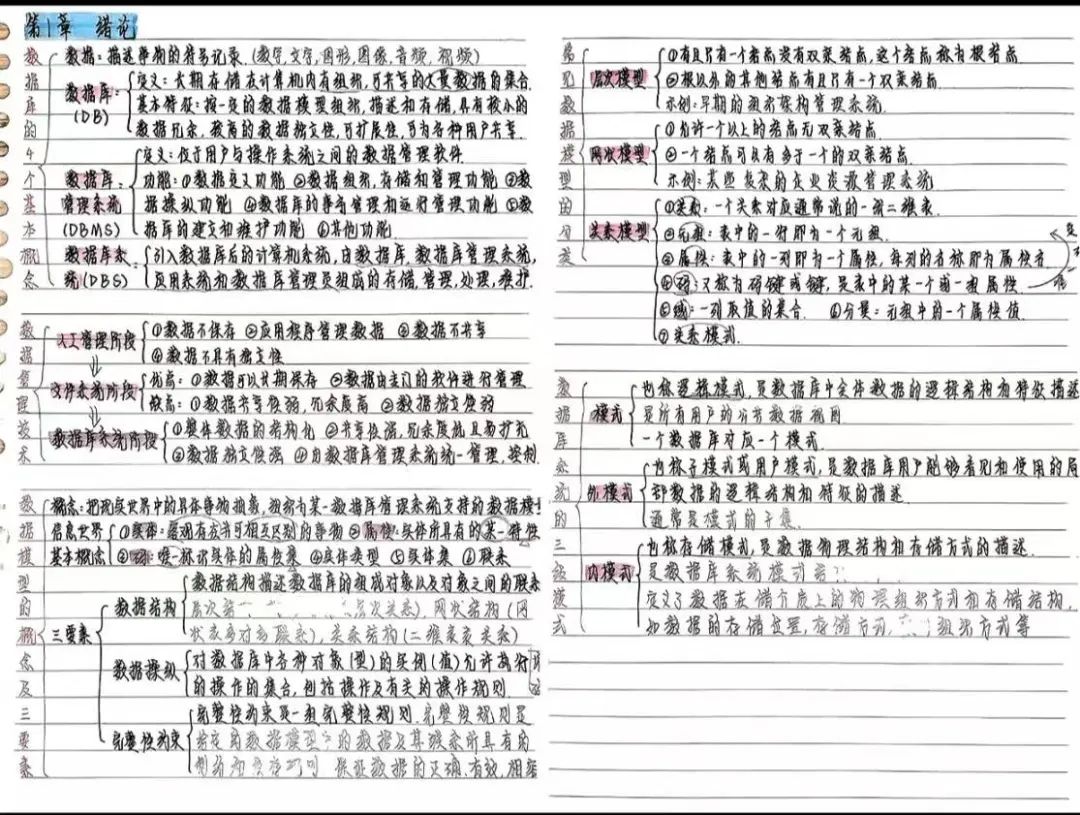 第1章 绪论
数据库的4个基本概念
数据：描述事物的符号记录.(数字,文字,图形,图像,音频,视频)
数据库：(DB)
定义：长期存储在计算机内有组织,可共享的大量数据的集合.
基本特征：按一定的数据模型组织,描述和存储,具有较小的
数据冗余,较高的数据独立性,可扩展性,可为各种用户共享.
数据库管理系统(DBMS)
定义：位于用户与操作系统之间的数据管理软件.
功能：①数据定义功能 ②数据组织,存储和管理功能 ③数
据操纵功能 ④数据库的事务管理和运行管理功能 ⑤数
据库的建立和维护功能 ⑥其他功能.
数据库系统(DBS)
引入数据库后的计算机系统,由数据库,数据库管理系统,
应用系统和数据库管理员组成的存储,管理,处理,维护.
数据管理技术
人工管理阶段
①数据不保存 ②应用程序管理数据 ③数据不共享
④数据不具有独立性
⇓
文件系统阶段
优点：①数据可以长期保存 ②数据由专门的软件进行管理
缺点：①数据共享性弱,冗余度高 ②数据独立性弱
⇓
数据库系统阶段
①整体数据的结构化 ②共享性强,冗余度低且易扩充
③数据独立性强 ④由数据库管理系统统一管理,控制.
数据模型的概念及三要素
概念：把现实世界中的具体事物抽象,组织为某一数据库管理系统支持的数据模型
信息世界基本概念
①实体：客观存在并可相互区别的事物 ②属性：实体所具有的某一特性
③码：唯一标识实体的属性集 ④实体类型 ⑤实体集 ⑥联系
三要素
数据结构
数据结构描述数据库的组成对象以及对象之间的联系
层次结 层次关系),网状结构(网
状表多对多联系),关系结构(二维表表关系)
数据操纵
对数据库中各种对象(型)的实例(值)允许执行
的操作的集合,包括操作及有关的操作规则.
完整性约束
完整性约束是一组完整性规则.完整性规则是
给定的数据模型中的数据及其联系所具有的
制约和依存 保证数据的正确,有效,相容
常见数据模型的分类
层次模型
①有且只有一个结点没有双亲结点,这个结点称为根结点
②根以外的其他结点有且只有一个双亲结点
示例：早期的组织架构管理系统.
网状模型
①允许一个以上的结点无双亲结点.
②一个结点可以有多于一个的双亲结点.
示例：某些复杂的企业资源管理系统
关系模型
①关系：一个关系对应通常说的一张二维表.
②元组：表中的一行即为一个元组.
③属性：表中的一列即为一个属性,每列的名称即为属性名
④码：又称为码键或键,是表中的某一个或一组属性.
⑤域：一列取值的集合. ⑥分量：元组中的一个属性值.
⑦关系模式.
数据库系统的三级模式
模式
也称逻辑模式,是数据库中全体数据的逻辑结构和特征描述
是所有用户的公共数据视图
一个数据库对应一个模式
外模式
也称子模式或用户模式,是数据库用户能够看见和使用的局
部数据的逻辑结构和特征的描述.
通常是模式的子集.
内模式
也称存储模式,是数据物理结构和存储方式的描述.
是数据库系统模式
定义了数据在储介质上的物理组织方式和存储结构,
如数据的存储位置,存储方式, 组织方式等